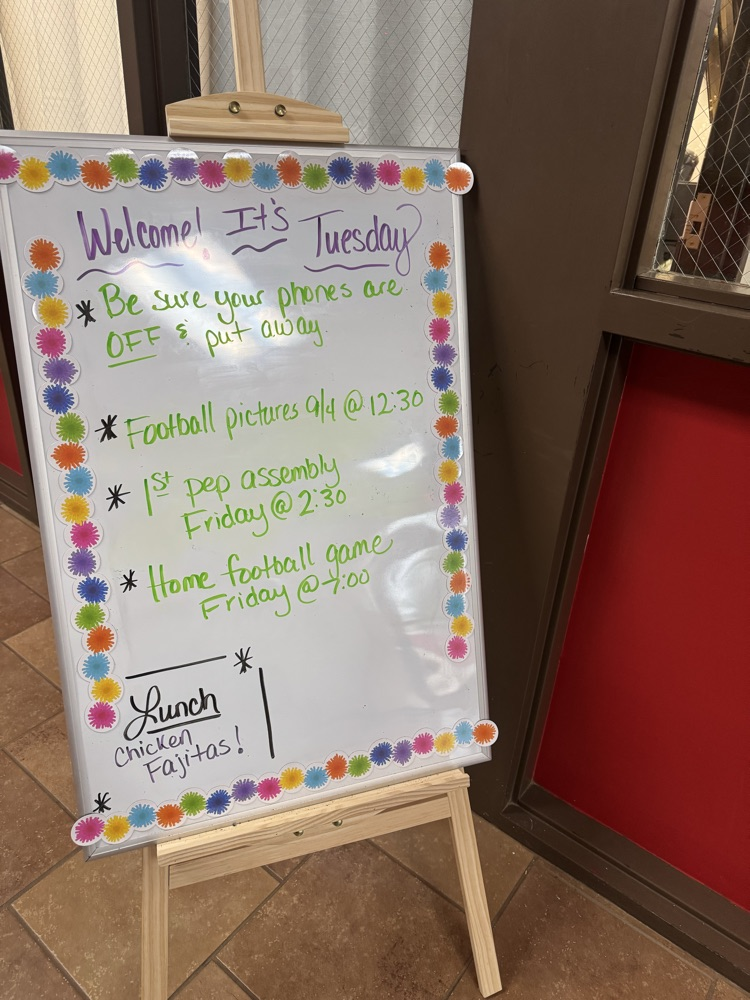 Welcome! It's Tuesday
* Be sure your phones are
OFF & put away
* Football pictures 9/4 @ 12:30
* 1st pep assembly
Friday @ 2:30
* Home football game
Friday @ 7:00
*
Lunch
Chicken
Fajitas!
*